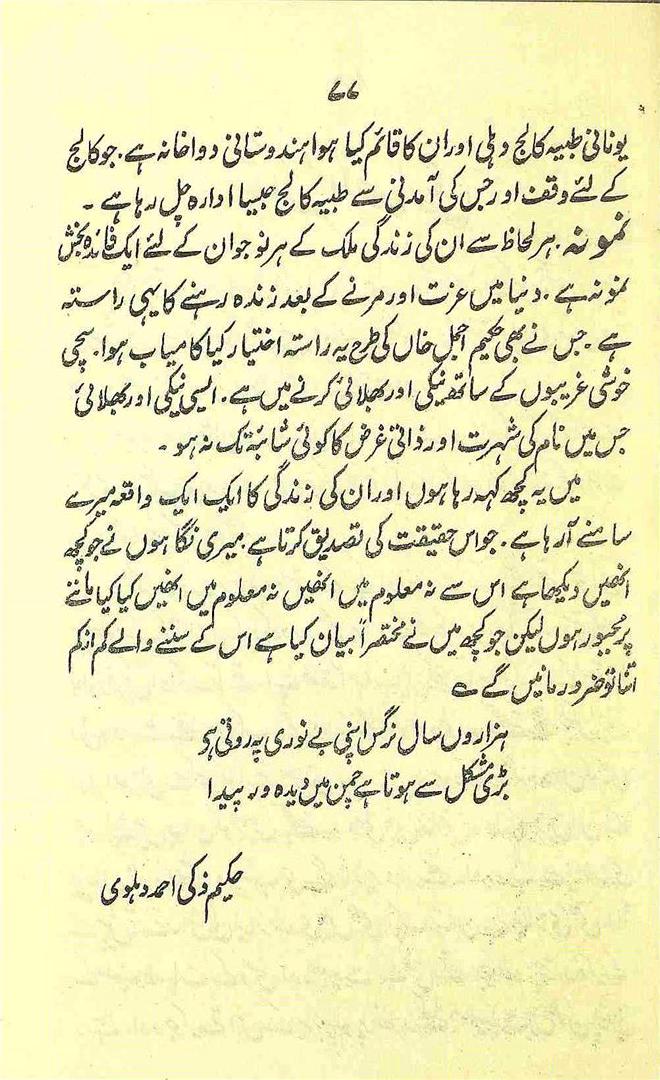 ۷۷
یونانی طبیہ کالج دہلی اور ان کا قائم کیا ہوا ہندوستانی دواخانہ ہے۔ جو کالج
کے لئے وقف اور جس کی آمدنی سے طبیہ کالج جیسا ادارہ چل رہا ہے۔
نمونہ۔ ہر لحاظ سے ان کی زندگی ملک کے ہر نوجوان کے لئے ایک فائدہ بخش
نمونہ ہے۔ دنیا میں عزت اور مرنے کے بعد زندہ رہنے کا یہی راستہ
ہے۔ جس نے بھی حکیم اجمل خاں کی طرح یہ راستہ اختیار کیا کامیاب ہوا۔ سچی
خوشی غریبوں کے ساتھ نیکی اور بھلائی کرنے میں ہے۔ ایسی نیکی اور بھلائی
جس میں نام کی شہرت اور ذاتی غرض کا کوئی شائبۂ تک نہ ہو۔
میں یہ کچھ کہہ رہا ہوں اور ان کی زندگی کا ایک ایک واقعہ میرے
سامنے آرہا ہے۔ جو اس حقیقت کی تصدیق کرتا ہے۔ میری نگاہوں نے جو کچھ
انھیں دیکھا ہے اس سے نہ معلوم میں انھیں نہ معلوم میں انھیں کیا کیا ماننے
پر مجبور ہوں لیکن جو کچھ میں نے مختصراً بیان کیا ہے اس کے سننے والے کم از کم
اتنا تو ضرور مانیں گے ؎
ہزاروں سال نرگس اپنی بے نوری پہ روتی ہے
بڑی مشکل سے ہوتا ہے چمن میں دیدہ ور پیدا
حکیم ذکی احمد دہلوی